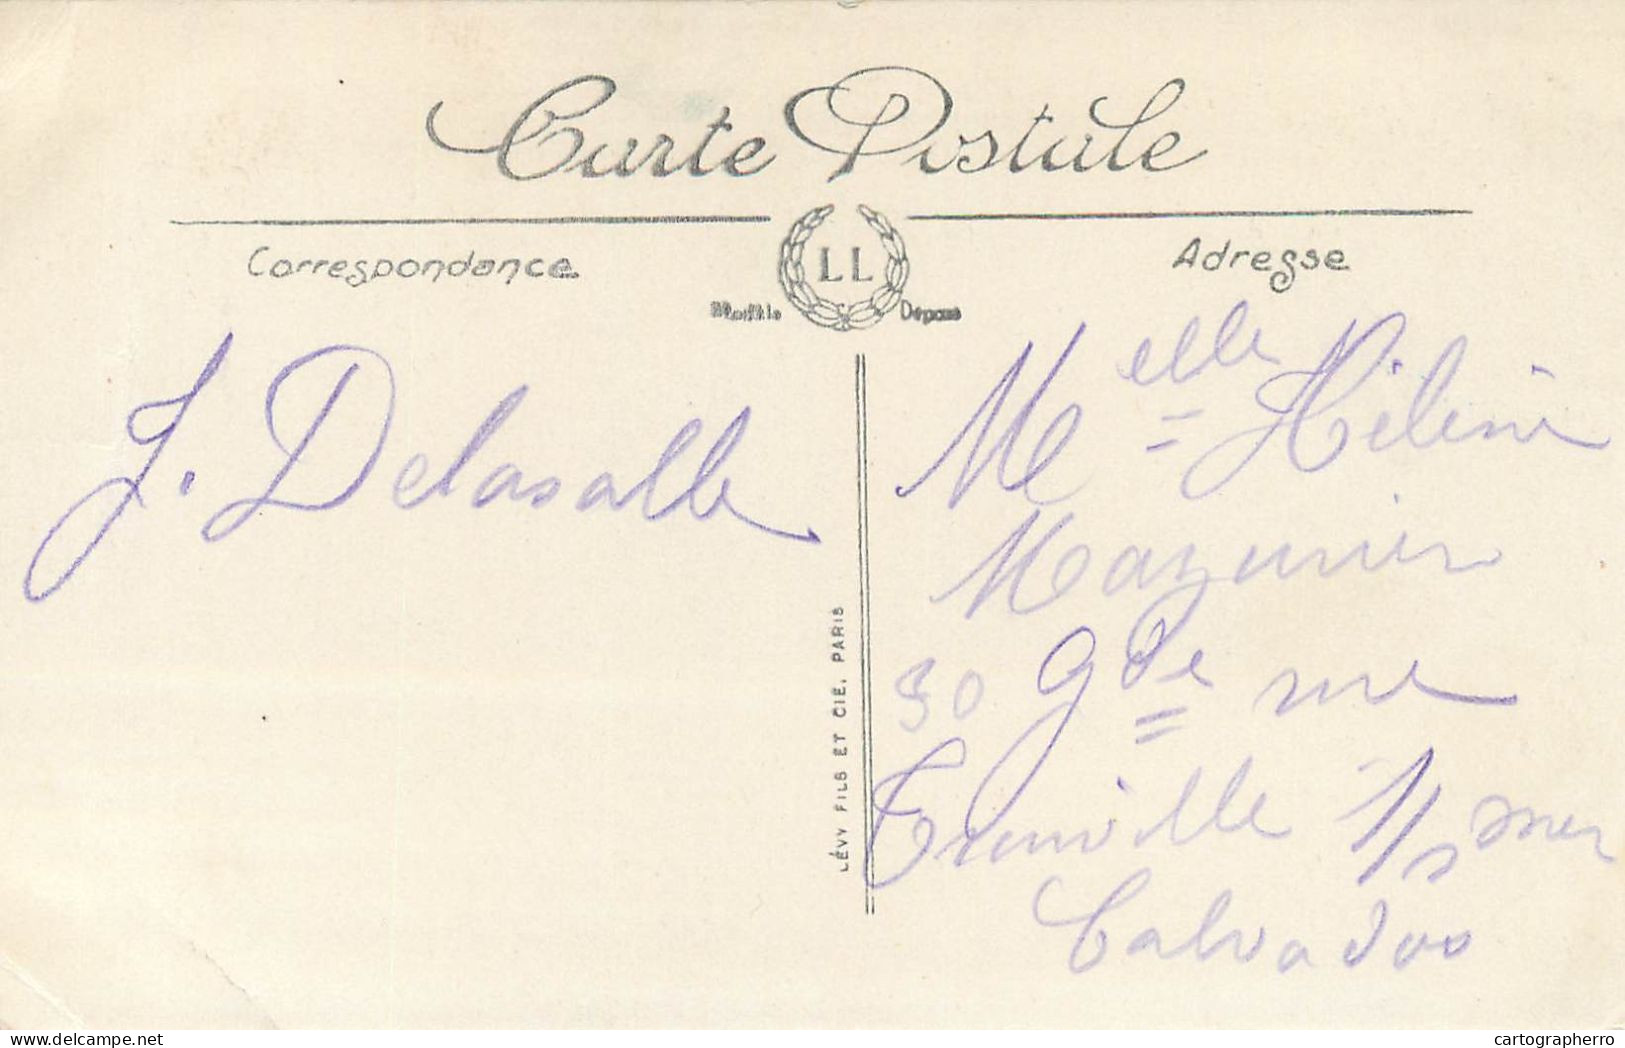 Carte Postale
Correspondance
LL
Adresse
Modèle Déposé
J. Delasalle
Melle Hélène
30 Gde rue
Trouville s/ mer
Calvados
LÉVY FILS ET CIE, PARIS
delcampe.net
cartographerro